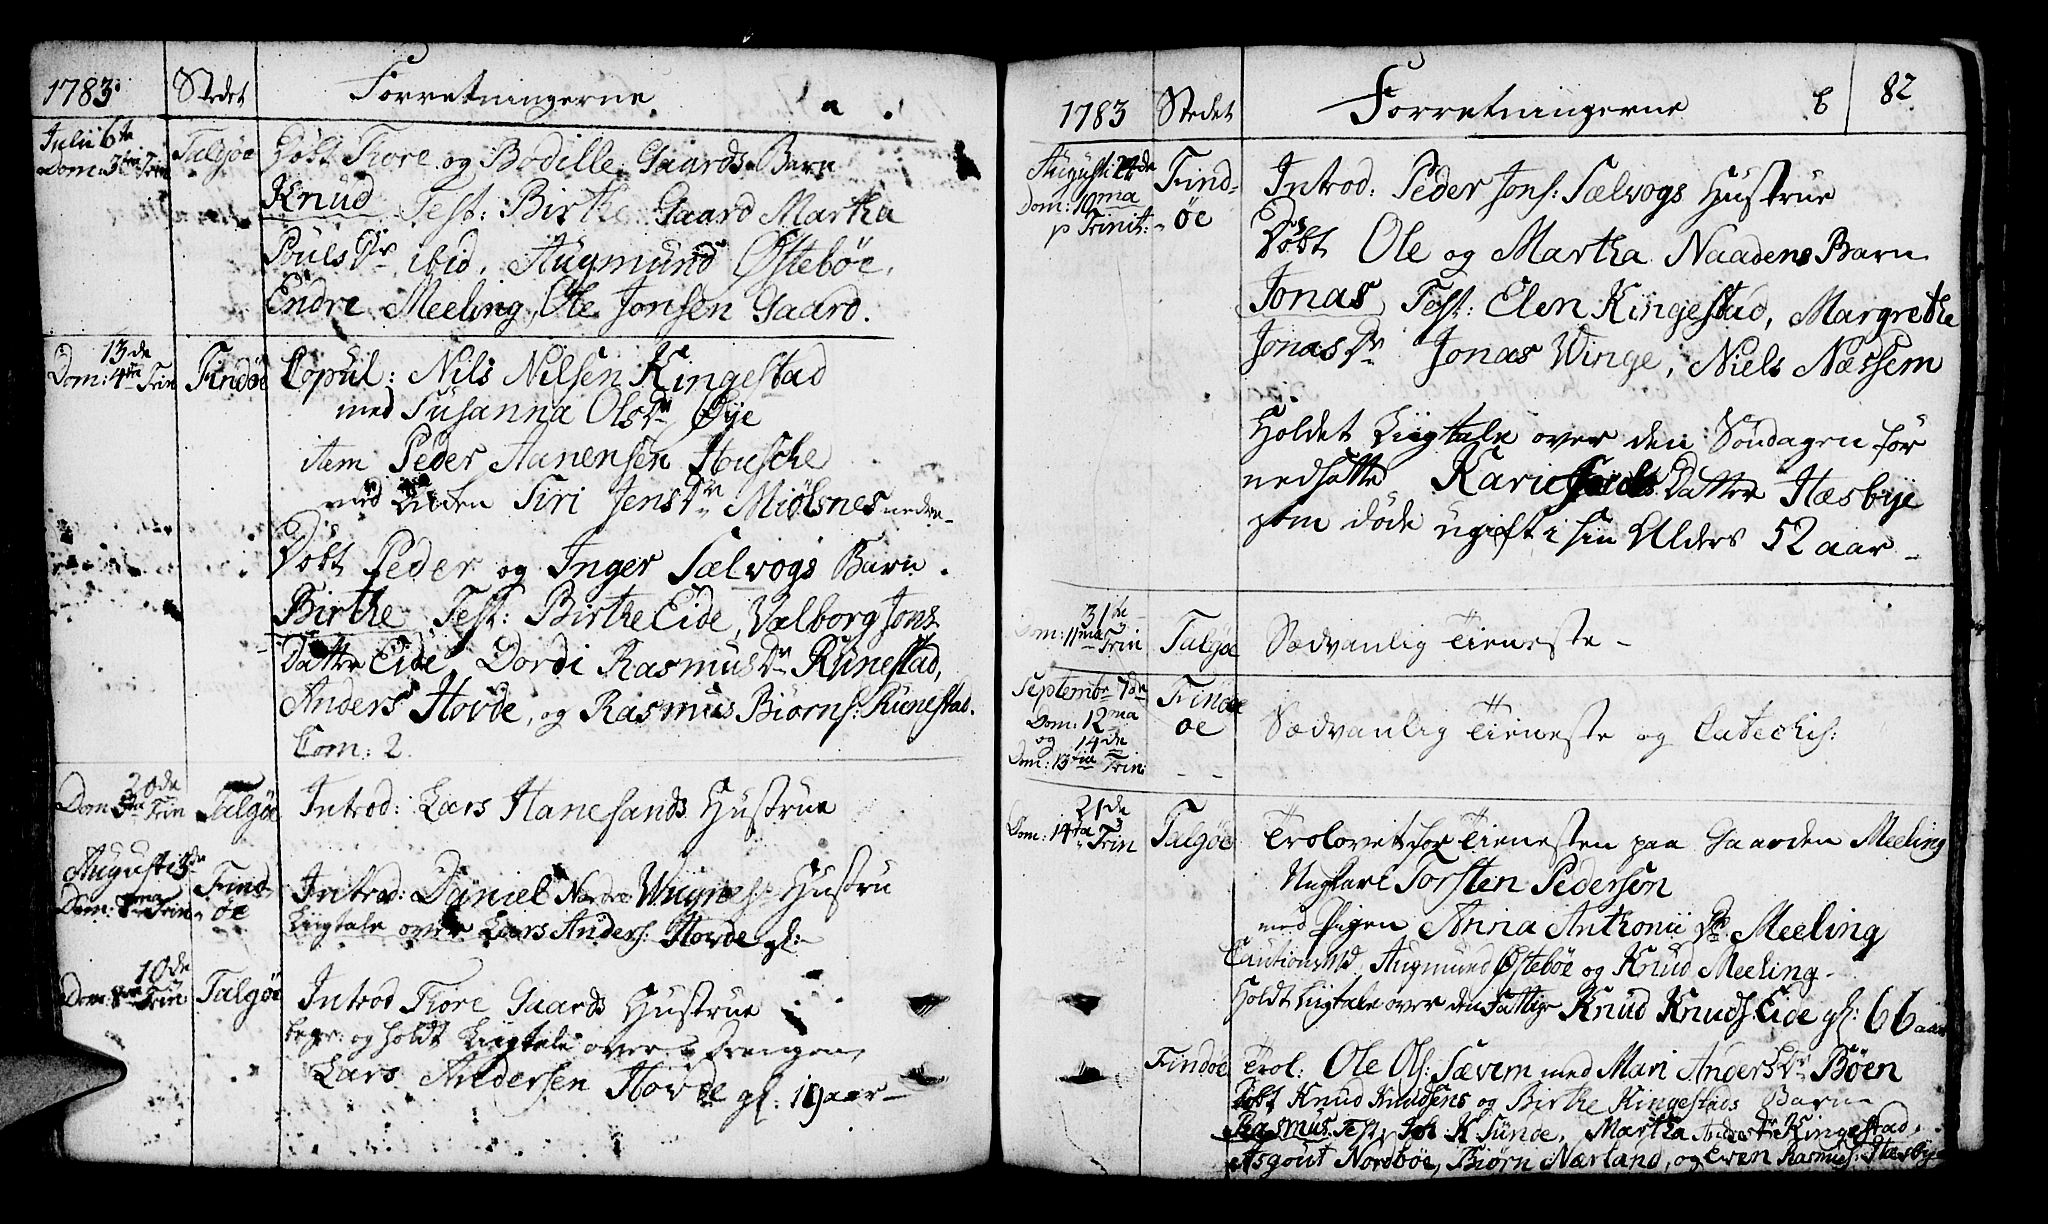 1783. Stedet Forretningerne a
Julii 6te Talgøe Døbt Tore og Bodille Gaards Barn
Dom: 3tia Trin Knud Test: Birthe Gaard Martha
Pouls Dr ibid. Augmund Østebøe,
Endre Meeling, Ole Jonsen Gaard.
13de Findøe Copul: Nils Nilsen Kingestad
Dom: 4ta Trin med Susanna Olsdr Øye
item Peder Aanensen Husche
med Siri Jens Dr Miølsnes nedre
Døbt Peder og Inger Sælvogs Barn.
Birthe Test: Birthe Eide, Valborg Jons
Datter Eide, Dordi Rasmus Dr Runestad,
Anders Hovde, og Rasmus Biørns: Runestad.
Com: 2.
20de
Dom 5ta Trin Talgøe Introd: Lars Hanesands Hustrue
Augusti 3de Find-
Dom: Trin øe Introd: Daniel Nordre Hustru
Liigtale over Lars Anders: Hovde gl:
10de
Dom: 8va Trin Talgøe Introd Tore Gaards Hustrue
begr: og holdt Liigtale over Drengen
Lars Andersen Hovde gl. 19 aar
1783 Stedet Forretningerne b 82
Augusti 24de Find-
Dom: 10ma øe Introd: Peder Jons: Sælvogs Hustrue
p Trinit: Døbt Ole og Martha Naadens Barn
Jonas, Test: Elen Kingestad, Margrethe
Jonas Dr Jonas Winge, Niels Næssem
Holdet Liigtale over den Søndagen før
nedsatte Kari Datter Hæsbye
som døde ugift i sin Alders 52 aar
31te
Dom: 11ma Trin Talgøe Sædvanlig Tieneste
Septembr 7de Findøe
Dom: 12ma
og 14de
Dom: 13tia Trin: Sædvanlig Tieneste og Catechis:
21de
Dom: 14da Trin Talgøe Trolovet før Tienesten paa Gaarden Meeling
Ungkarl Torsten Pedersen
med Pigen Anna Anthonii Dr Meeling
Cautionsmd Augmund Østebøe og Knud Meeling
Holdt Liigtale over den Fattige Knud Knuds: Eide gl: 66 aar
Findøe Trol: Ole Ols: Sævem med Mari Anders Dr Bøen
Døbt Knud Knudsens og Birthe Kingestads Barn
Rasmus. Test. Joh: K Sunde, Martha Anders Dr Kingestad,
Asgout Nordbøe, Biørn Nærland, og Even Rasmus: Hæsbye